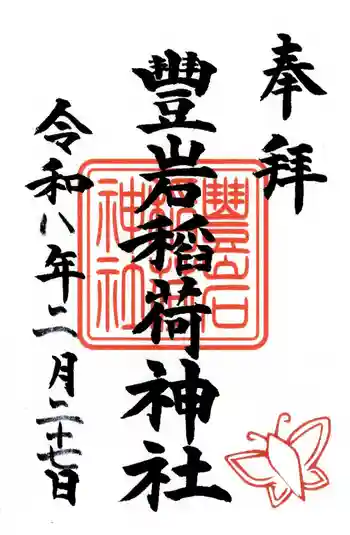 奉拝
豐岩稲荷神社
豐岩稲荷神社
令和八年二月二十七日